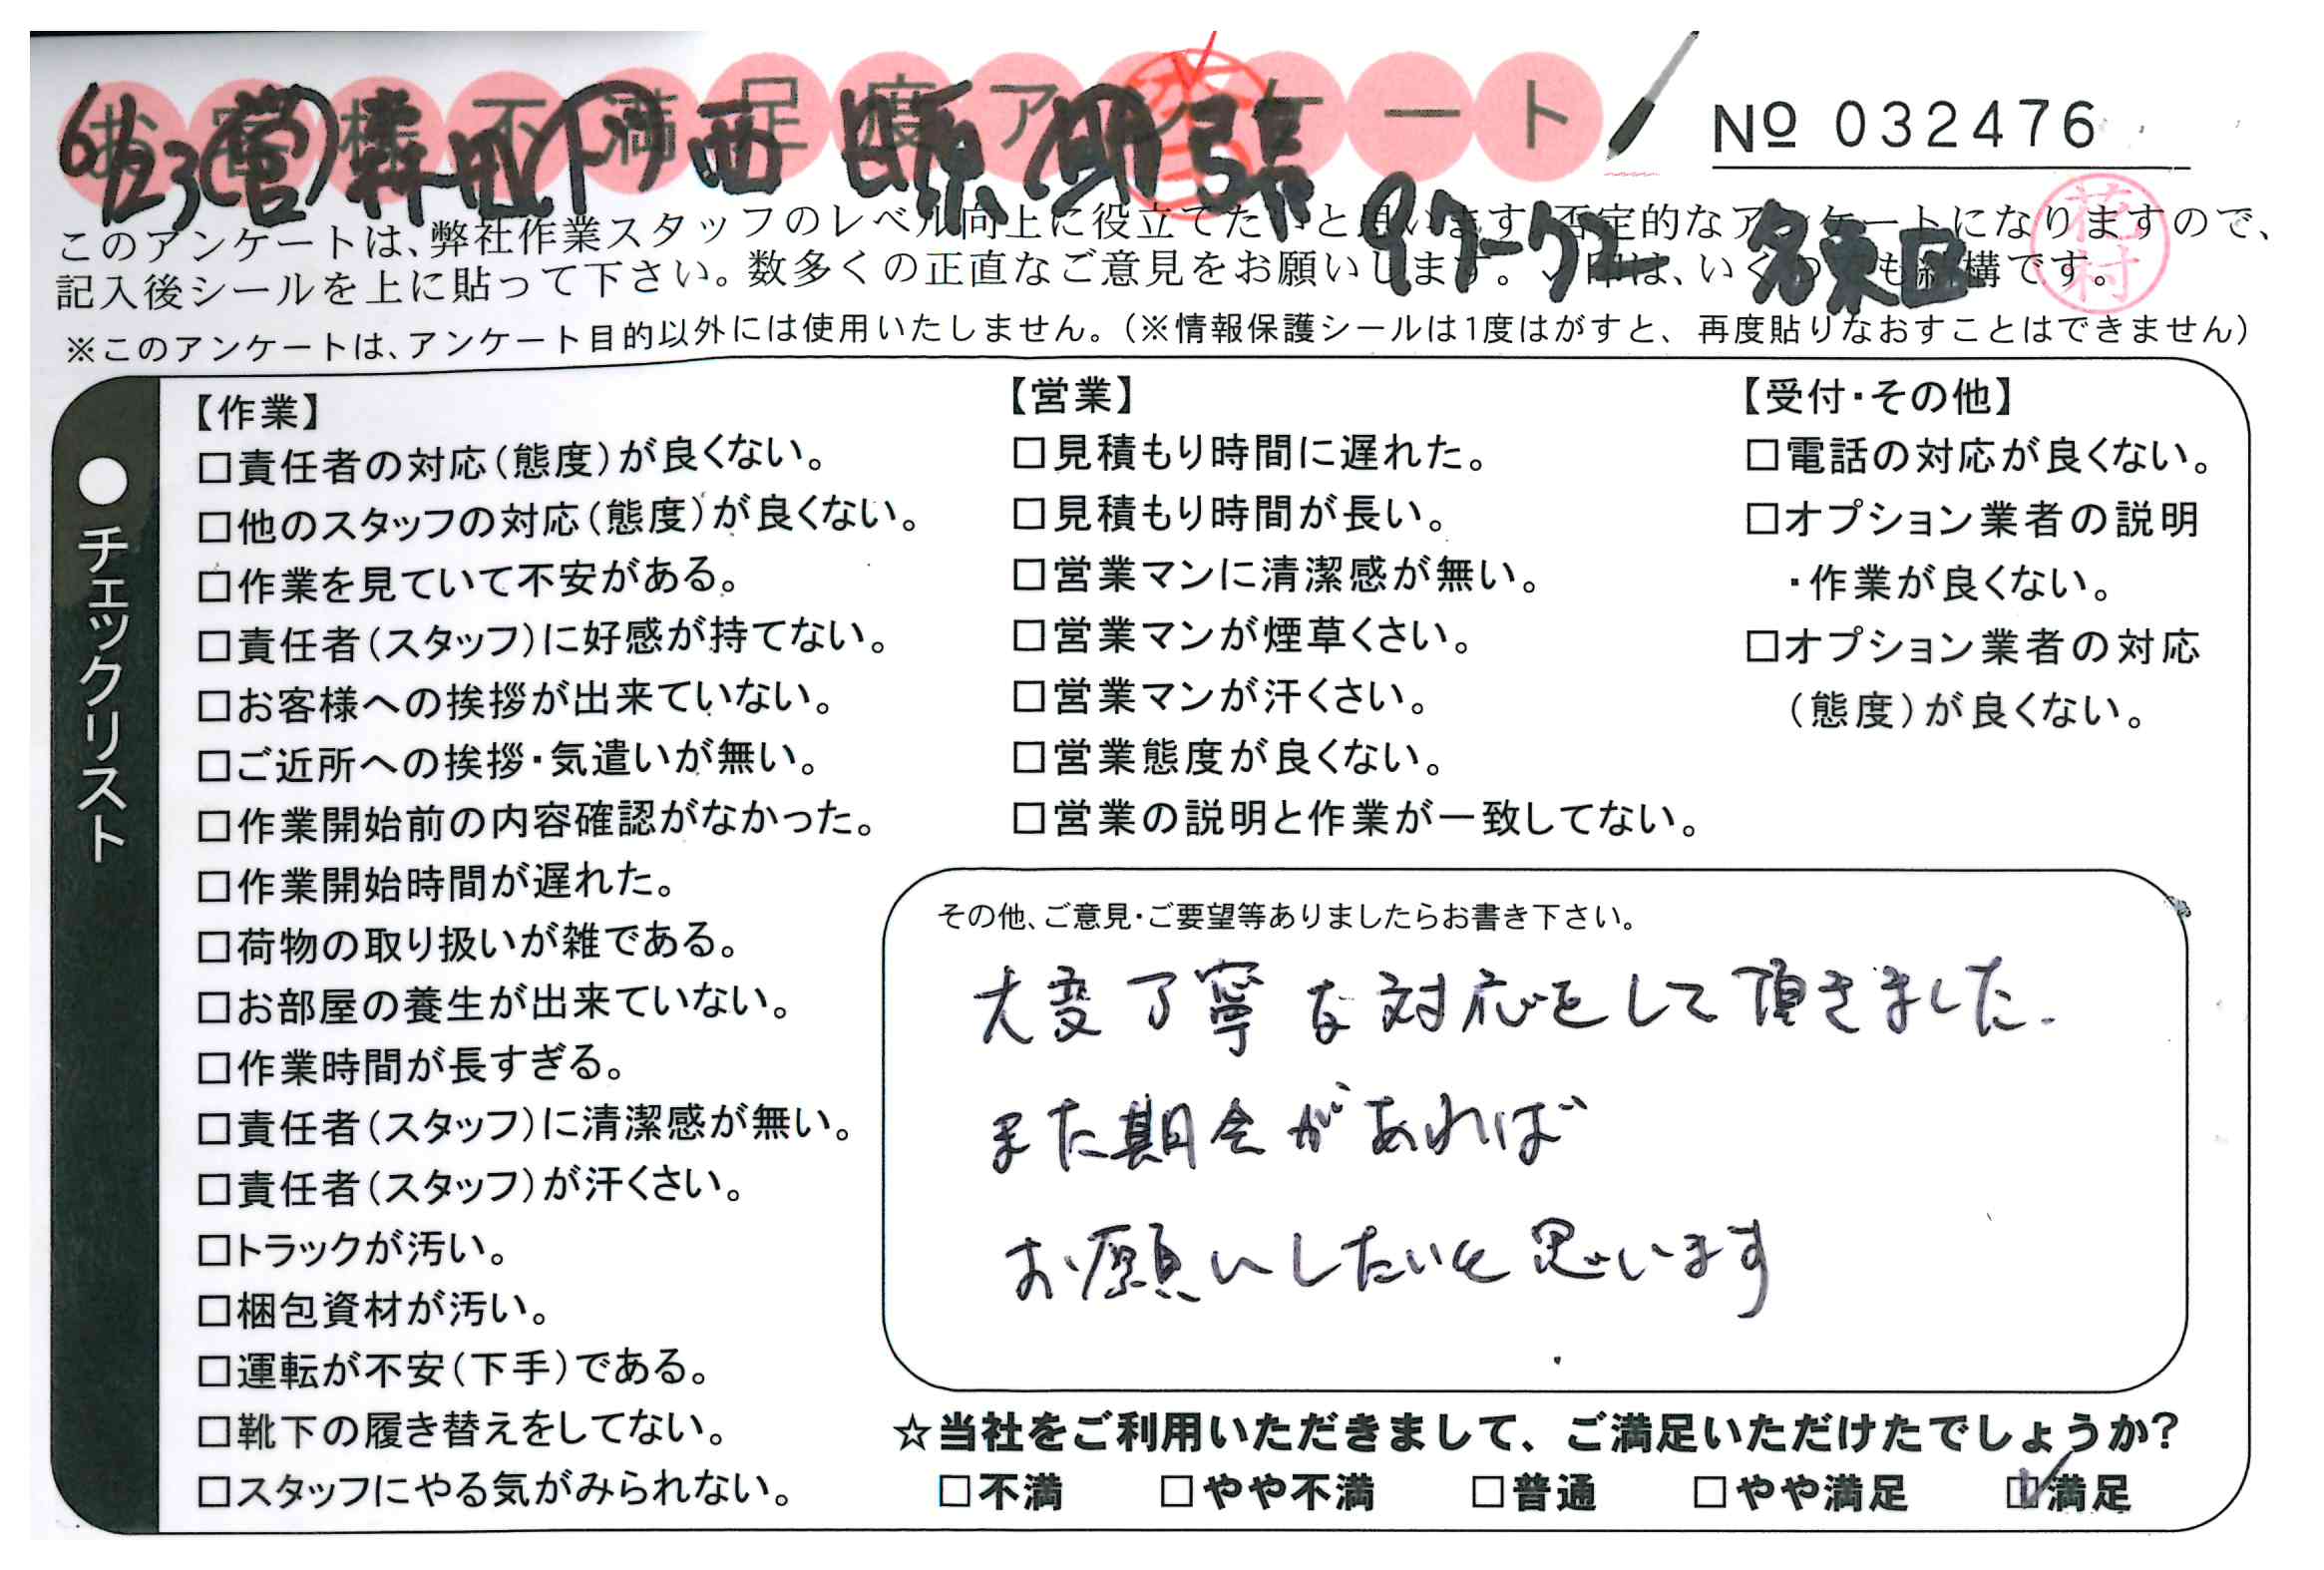 お客様不満足度アンケート
No 032476
6/23(営)森 西 97-72 名東区
花村
このアンケートは、弊社作業スタッフのレベル向上に役立てたいと思います。否定的なアンケートになりますので、
記入後シールを上に貼って下さい。数多くの正直なご意見をお願いします。✓印は、いくつでも結構です。
※このアンケートは、アンケート目的以外には使用いたしません。(※情報保護シールは1度はがすと、再度貼りなおすことはできません)
●チェックリスト
【作業】
□責任者の対応(態度)が良くない。
□他のスタッフの対応(態度)が良くない。
□作業を見ていて不安がある。
□責任者(スタッフ)に好感が持てない。
□お客様への挨拶が出来ていない。
□ご近所への挨拶・気遣いが無い。
□作業開始前の内容確認がなかった。
□作業開始時間が遅れた。
□荷物の取り扱いが雑である。
□お部屋の養生が出来ていない。
□作業時間が長すぎる。
□責任者(スタッフ)に清潔感が無い。
□責任者(スタッフ)が汗くさい。
□トラックが汚い。
□梱包資材が汚い。
□運転が不安(下手)である。
□靴下の履き替えをしてない。
□スタッフにやる気がみられない。
【営業】
□見積もり時間に遅れた。
□見積もり時間が長い。
□営業マンに清潔感が無い。
□営業マンが煙草くさい。
□営業マンが汗くさい。
□営業態度が良くない。
□営業の説明と作業が一致してない。
【受付・その他】
□電話の対応が良くない。
□オプション業者の説明
・作業が良くない。
□オプション業者の対応
(態度)が良くない。
その他、ご意見・ご要望等ありましたらお書き下さい。
大変丁寧な対応をして頂きました.
また期会があれば
お願いしたいと思います
☆当社をご利用いただきまして、ご満足いただけたでしょうか?
□不満 □やや不満 □普通 □やや満足 ☑満足